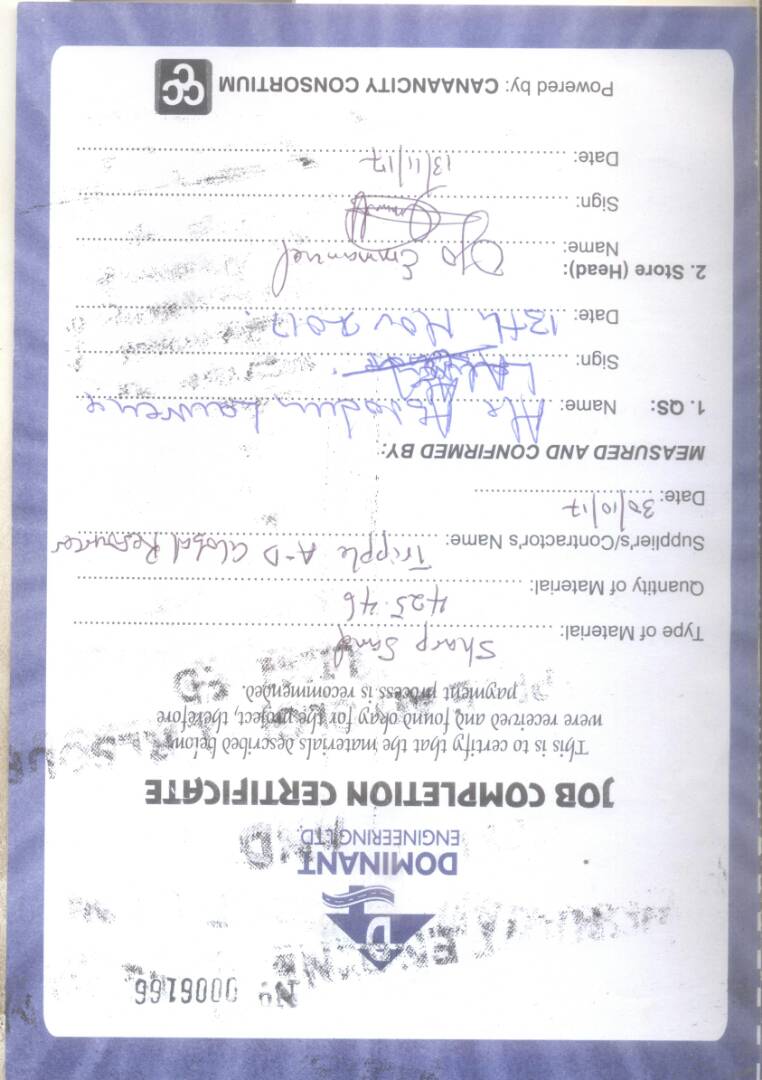 Nº 0006166
DOMINANT
ENGINEERING LTD.
JOB COMPLETION CERTIFICATE
This is to certify that the materials described below
were received and found okay for the project, therefore
payment process is recommended.
Type of Material: Sharp Sand
Quantity of Material: 425.46
Supplier's/Contractor's Name: Tripple A-D Global Resources
Date: 30/10/17
MEASURED AND CONFIRMED BY:
1. QS: Name: Abiodun Lawrence
Sign:
Date: 13th Nov 2017
2. Store (Head):
Name: Ojo Emmanuel
Sign:
Date: 13/11/17
Powered by: CANAANCITY CONSORTIUM CCC